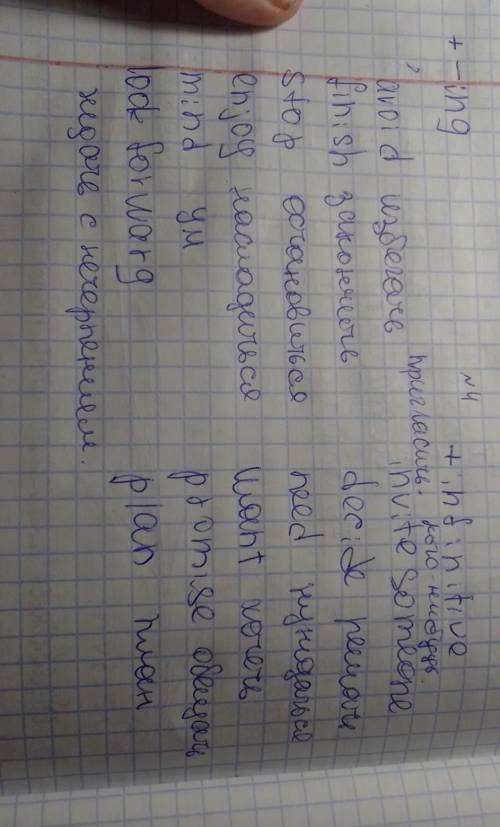 №4
+ -ing + infinitive
avoid избегать
finish закончить
stop остановиться
enjoy насладиться
mind ум
look forwarg
ждать с нечерпением.
пригласить. кого-нибудь
invite someone
decide решать
need нуждаться
want хотеть
promise обещать
plan план